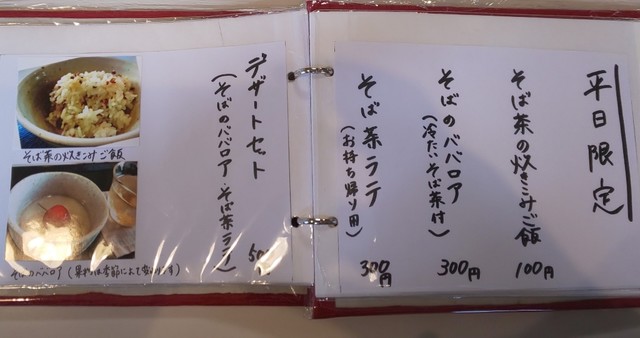 平日限定
そば茶の炊きこみご飯 100円
そばのババロア 300円
(冷たいそば茶付)
そば茶ラテ 300円
(お持ち帰り用)
デザートセット
(そばのババロア・そば茶ラテ) 50
そば茶の炊きこみご飯
そばのババロア(果物は季節によって変わります)